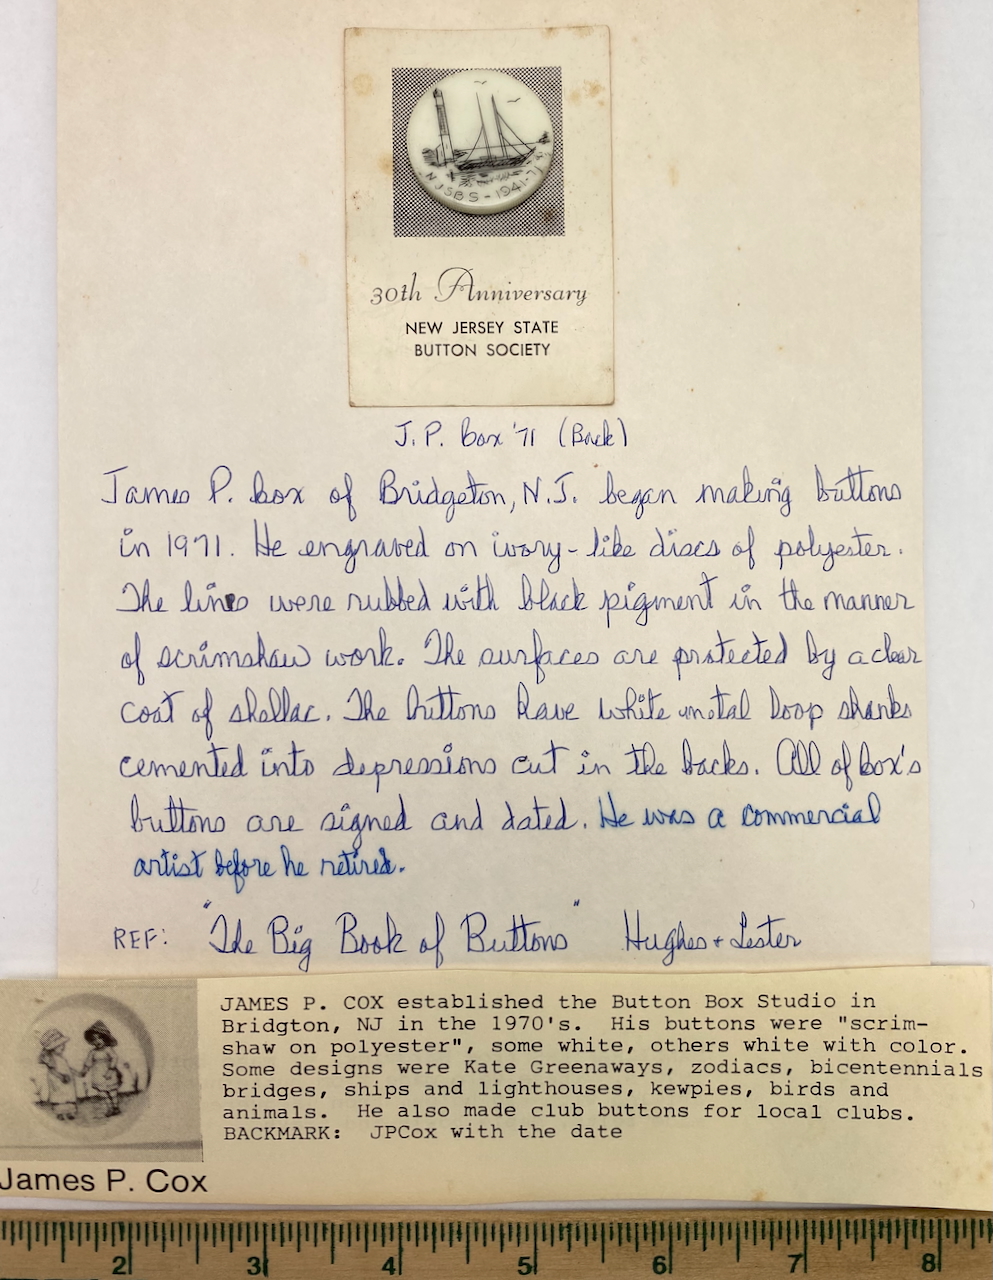 NJSBS - 1941-71
30th Anniversary
NEW JERSEY STATE
BUTTON SOCIETY
J. P. Cox '71 (Back)
James P. Cox of Bridgeton, N.J. began making buttons
in 1971. He engraved on ivory-like discs of polyester.
The lines were rubbed with black pigment in the manner
of scrimshaw work. The surfaces are protected by a clear
coat of shellac. The buttons have white metal loop shanks
cemented into depressions cut in the backs. All of Cox's
buttons are signed and dated. He was a commercial
artist before he retired.
REF: "The Big Book of Buttons" Hughes + Lester
JAMES P. COX established the Button Box Studio in
Bridgton, NJ in the 1970's. His buttons were "scrim-
shaw on polyester", some white, others white with color.
Some designs were Kate Greenaways, zodiacs, bicentennials
bridges, ships and lighthouses, kewpies, birds and
animals. He also made club buttons for local clubs.
BACKMARK: JPCox with the date
James P. Cox
2 3 4 5 6 7 8